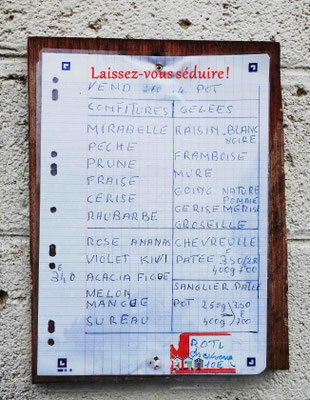 Laissez-vous séduire !
VEND POT
CONFITURES GELEES
MIRABELLE RAISIN BLANC
NOIRE
PECHE FRAMBOISE
PRUNE MURE
FRAISE COING NATURE
POMME
CERISE CERISE MERISE
RHUBARBE GROSEILLE
ROSE ANANAS CHEVREUILLE
VIOLET KIWI PATÉE
400g 700
ACACIA FIGUE
MELON SANGLIER PATÉE
MANGUE POT 250g 350
SUREAU 400g 700
10E